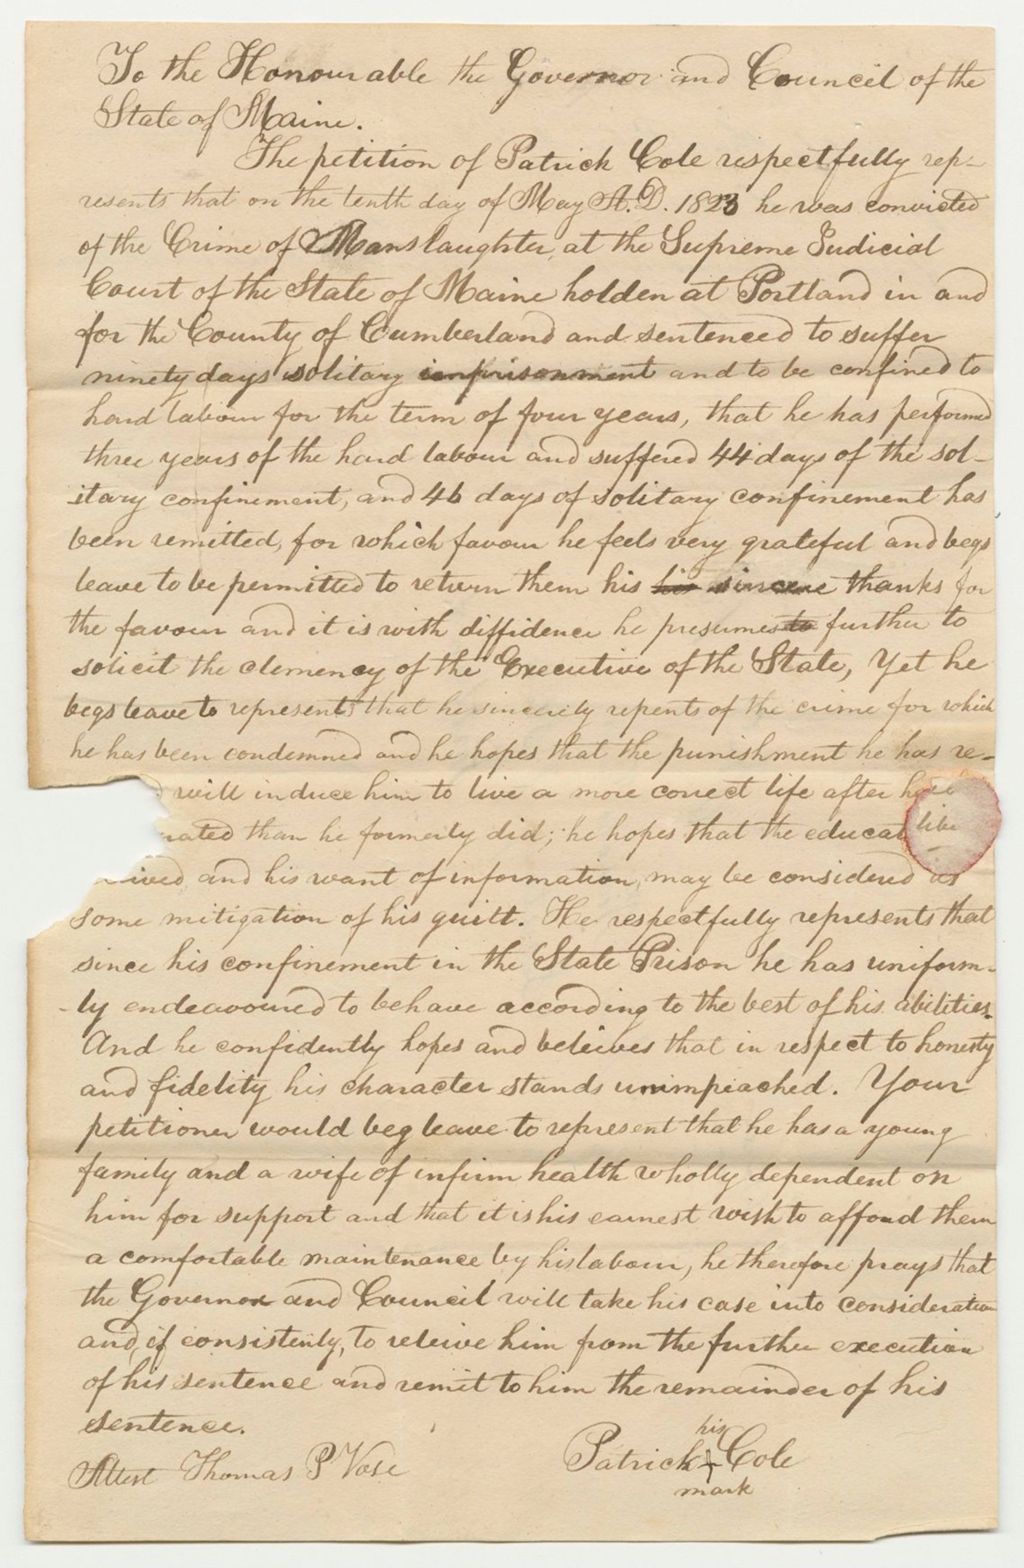 To the Honourable the Governor and Council of the
State of Maine.
The petition of Patrick Cole respectfully rep-
resents that on the tenth day of May A.D. 1823 he was convicted
of the Crime of Manslaughter, at the Supreme Judicial
Court of the State of Maine holden at Portland in and
for the County of Cumberland and sentenced to suffer
ninety days solitary imprisonment and to be confined to
hard labour for the term of four years, that he has performed
three years of the hard labour and suffered 44 days of the sol-
itary confinement, and 46 days of solitary confinement has
been remitted, for which favour he feels very grateful and begs
leave to be permitted to return them his his sincere thanks for
the favour and it is with diffidence he presumes to further to
solicit the clemency of the Executive of the State, Yet he
begs leave to represent that he sincerely repents of the crime for which
he has been condemned and he hopes that the punishment he has re-
d will induce him to live a more correct life after
rated than he formerly did; he hopes that the educat
ived and his want of information, may be considered as
some mitigation of his guilt. He respectfully represents that
since his confinement in the State Prison he has uniform-
-ly endeavoured to behave according to the best of his abilities.
And he confidently hopes and beleives that in respect to honesty
and fidelity his character stands unimpeached. Your
petitioner would beg leave to represent that he has a young
family and a wife of infirm health wholly dependent on
him for support and that it is his earnest wish to afford them
a comfortable maintenance by his labour, he therefore prays that
the Governor and Council will take his case into consideration
and, if consistently, to releive him from the further execution
of his sentence and remit to him the remainder of his
sentence.
his
Attest Thomas P Vose Patrick + Cole
mark